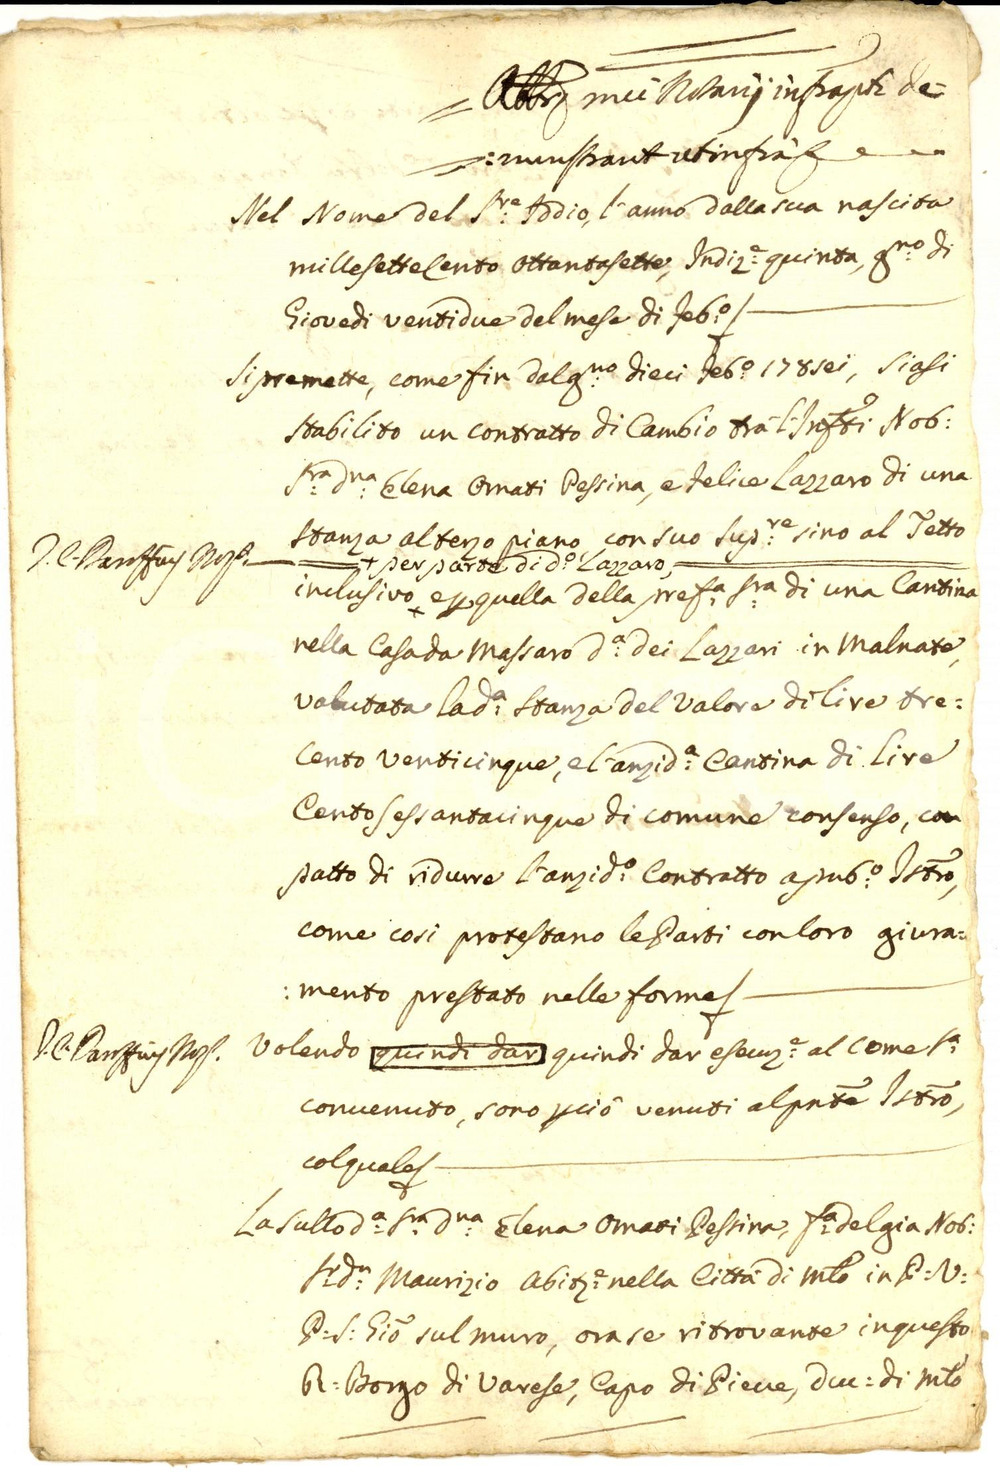 mei Notarij infrapti de=
:munstrant ut infrà
Nel Nome del S.re Iddio, l'anno dalla sua nascita
millesettecento ottantasette, Indiz.e quinta, g.no di
Giovedi ventidue del mese di Feb.o
Si premette, come fin dal g.no dieci Feb.o 178sei, siasi
stabilito un contratto di Cambio trà l'Infr̃tti Nob:
Sra Dna Elena Ornati Pessina, e Felice Lazzaro di una
stanza al terzo piano con suo Sup.re sino al Tetto
+ per parte di d.o Lazzaro,
inclusivo + e p quella della pref.a Sra di una Cantina
nella Casa da Massaro d.a dei Lazzari in Malnate,
valutata la d.a stanza del valore di lire tre=
cento venticinque, e l'anzid.a Cantina di lire
Cento sessantacinque di comune consenso, con
patto di ridurre l'anzid.o Contratto a pub.o Istro,
come così protestano le Parti con loro giura=
:mento prestato nelle forme
Volendo quindi dar quindi dar esecuz.e al come s.a
convenuto, sono p ciò venuti al pnte Istro,
col quale
La sullod.a Sra Dna Elena Ornati Pessina, f.a del gia Nob:
Sr Dn Maurizio abit.e nella Città di Mlo in P: N:
P: S: Gio sul muro, ora se ritrovante in questo
R: Borgo di Varese, Capo di Pieve, Duc: di Mlo